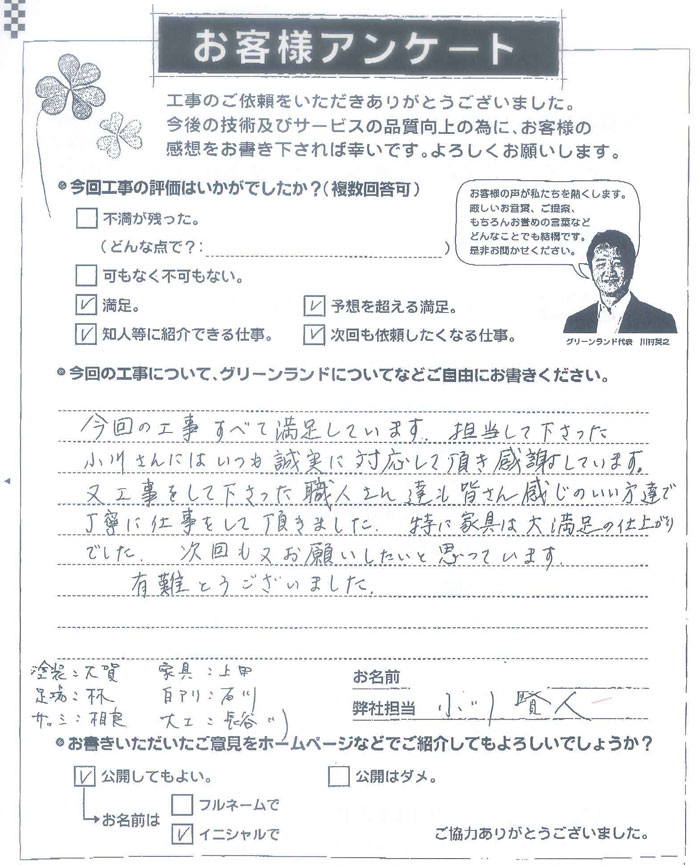 お客様アンケート
工事のご依頼をいただきありがとうございました。
今後の技術及びサービスの品質向上の為に、お客様の
感想をお書き下されば幸いです。よろしくお願いします。
今回工事の評価はいかがでしたか？(複数回答可)
不満が残った。
(どんな点で？: )
可もなく不可もない。
満足。
予想を超える満足。
知人等に紹介できる仕事。
次回も依頼したくなる仕事。
お客様の声が私たちを熱くします。
厳しいお言葉、ご提案、
もちろんお誉めの言葉など
どんなことでも結構です。
是非お聞かせください。
グリーンランド代表 川村英之
今回の工事について、グリーンランドについてなどご自由にお書きください。
今回の工事すべて満足しています. 担当して下さった
小川さんにはいつも誠実に対応して頂き感謝しています。
又工事をして下さった職人さん達も皆さん感じのいい方達で
丁寧に仕事をして頂きました. 特に家具は大満足の仕上がり
でした. 次回も又お願いしたいと思っています.
有難とうございました.
塗装:大賀 家具:上田
足場:林 白アリ:石川
サッシ:相良 大工:長谷川
お名前
弊社担当 小川 賢人
お書きいただいたご意見をホームページなどでご紹介してもよろしいでしょうか？
公開してもよい。
公開はダメ。
お名前は
フルネームで
イニシャルで
ご協力ありがとうございました。